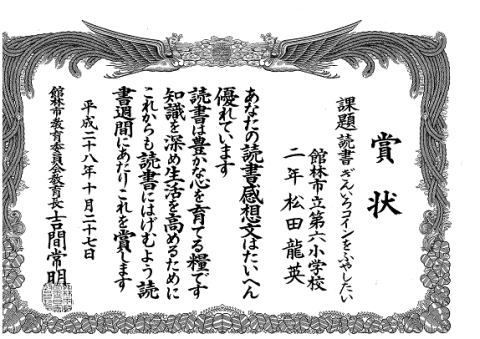 賞状
課題読書 ぎんいろコインをふやしたい
館林市立第六小学校
二年 松田龍英
あなたの読書感想文はたいへん
優れています
読書は豊かな心を育てる糧です
知識を深め生活を高めるために
これからも読書にはげむよう読
書週間にあたりこれを賞します
平成二十八年十月二十七日
館林市教育委員会教育長 吉間常明